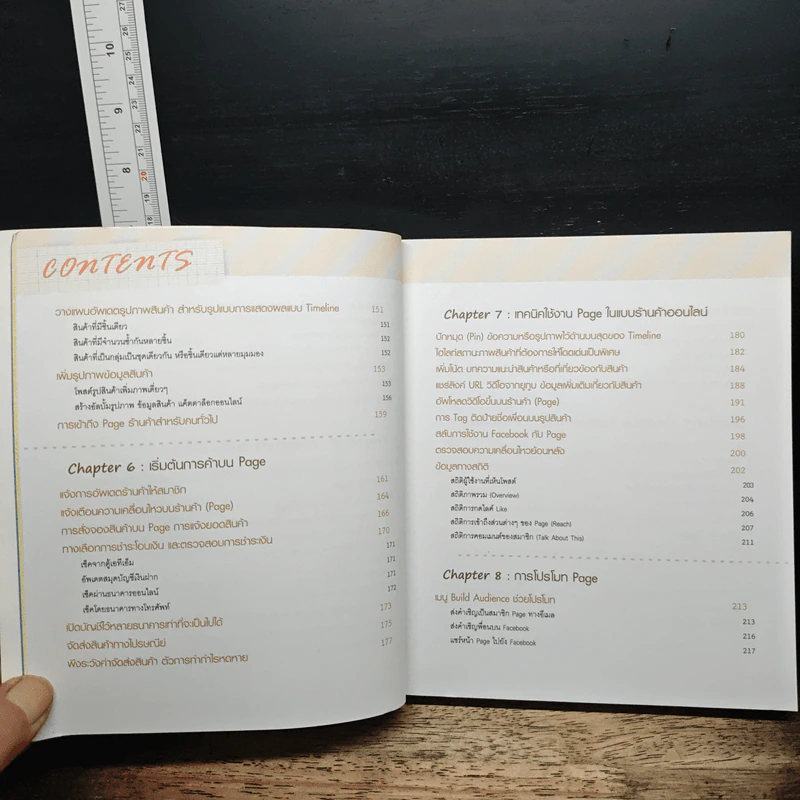 CONTENTS
วางแผนอัพเดตรูปภาพสินค้า สำหรับรูปแบบการแสดงผลแบบ Timeline 151
สินค้าที่มีชิ้นเดียว 151
สินค้าที่มีจำนวนซ้ำกันหลายชิ้น 152
สินค้าที่เป็นกลุ่มเป็นชุดเดียวกัน หรือชิ้นเดียวแต่หลายมุมมอง 152
เพิ่มรูปภาพข้อมูลสินค้า 153
โพสต์รูปสินค้าเพิ่มภาพเดี่ยวๆ 153
สร้างอัลบั้มรูปภาพ ข้อมูลสินค้า แค็ตตาล็อกออนไลน์ 156
การเข้าถึง Page ร้านค้าสำหรับคนทั่วไป 159
Chapter 6 : เริ่มต้นการค้าบน Page
แจ้งการอัพเดตร้านค้าให้สมาชิก 161
แจ้งเตือนความเคลื่อนไหวบนร้านค้า (Page) 164
การสั่งจองสินค้าบน Page การแจ้งยอดสินค้า 166
ทางเลือกการชำระโอนเงิน และตรวจสอบการชำระเงิน 170
เช็คจากตู้เอทีเอ็ม 171
อัพเดตสมุดบัญชีเงินฝาก 171
เช็คผ่านธนาคารออนไลน์ 171
เช็คโดยธนาคารทางโทรศัพท์ 172
เปิดบัญชีไว้หลายธนาคารเท่าที่จะเป็นไปได้ 173
จัดส่งสินค้าทางไปรษณีย์ 175
พึงระวังค่าจัดส่งสินค้า ตัวการทำกำไรหดหาย 177
Chapter 7 : เทคนิคใช้งาน Page ในแบบร้านค้าออนไลน์
ปักหมุด (Pin) ข้อความหรือรูปภาพไว้ด้านบนสุดของ Timeline 180
ไฮไลท์สถานภาพสินค้าที่ต้องการให้โดดเด่นเป็นพิเศษ 182
เพิ่มโน้ต บทความแนะนำสินค้าหรือที่เกี่ยวข้องกับสินค้า 184
แชร์ลิงค์ URL วิดีโอจากยูทูบ ข้อมูลเพิ่มเติมเกี่ยวกับสินค้า 188
อัพโหลดวิดีโอขึ้นบนร้านค้า (Page) 191
การ Tag ติดป้ายชื่อเพื่อนบนรูปสินค้า 196
สลับการใช้งาน Facebook กับ Page 198
ตรวจสอบความเคลื่อนไหวย้อนหลัง 200
ข้อมูลทางสถิติ 202
สถิติผู้ใช้งานที่เห็นโพสต์ 203
สถิติภาพรวม (Overview) 204
สถิติการกดไลค์ Like 206
สถิติการเข้าถึงส่วนต่างๆ ของ Page (Reach) 207
สถิติการคอมเมนต์ของสมาชิก (Talk About This) 211
Chapter 8 : การโปรโมท Page
เมนู Build Audience ช่วยโปรโมท 213
ส่งคำเชิญเป็นสมาชิก Page ทางอีเมล 213
ส่งคำเชิญเพื่อนบน Facebook 216
แชร์หน้า Page ไปยัง Facebook 217
10
9
8
27
26
25
24
23
22
21
20
19
18